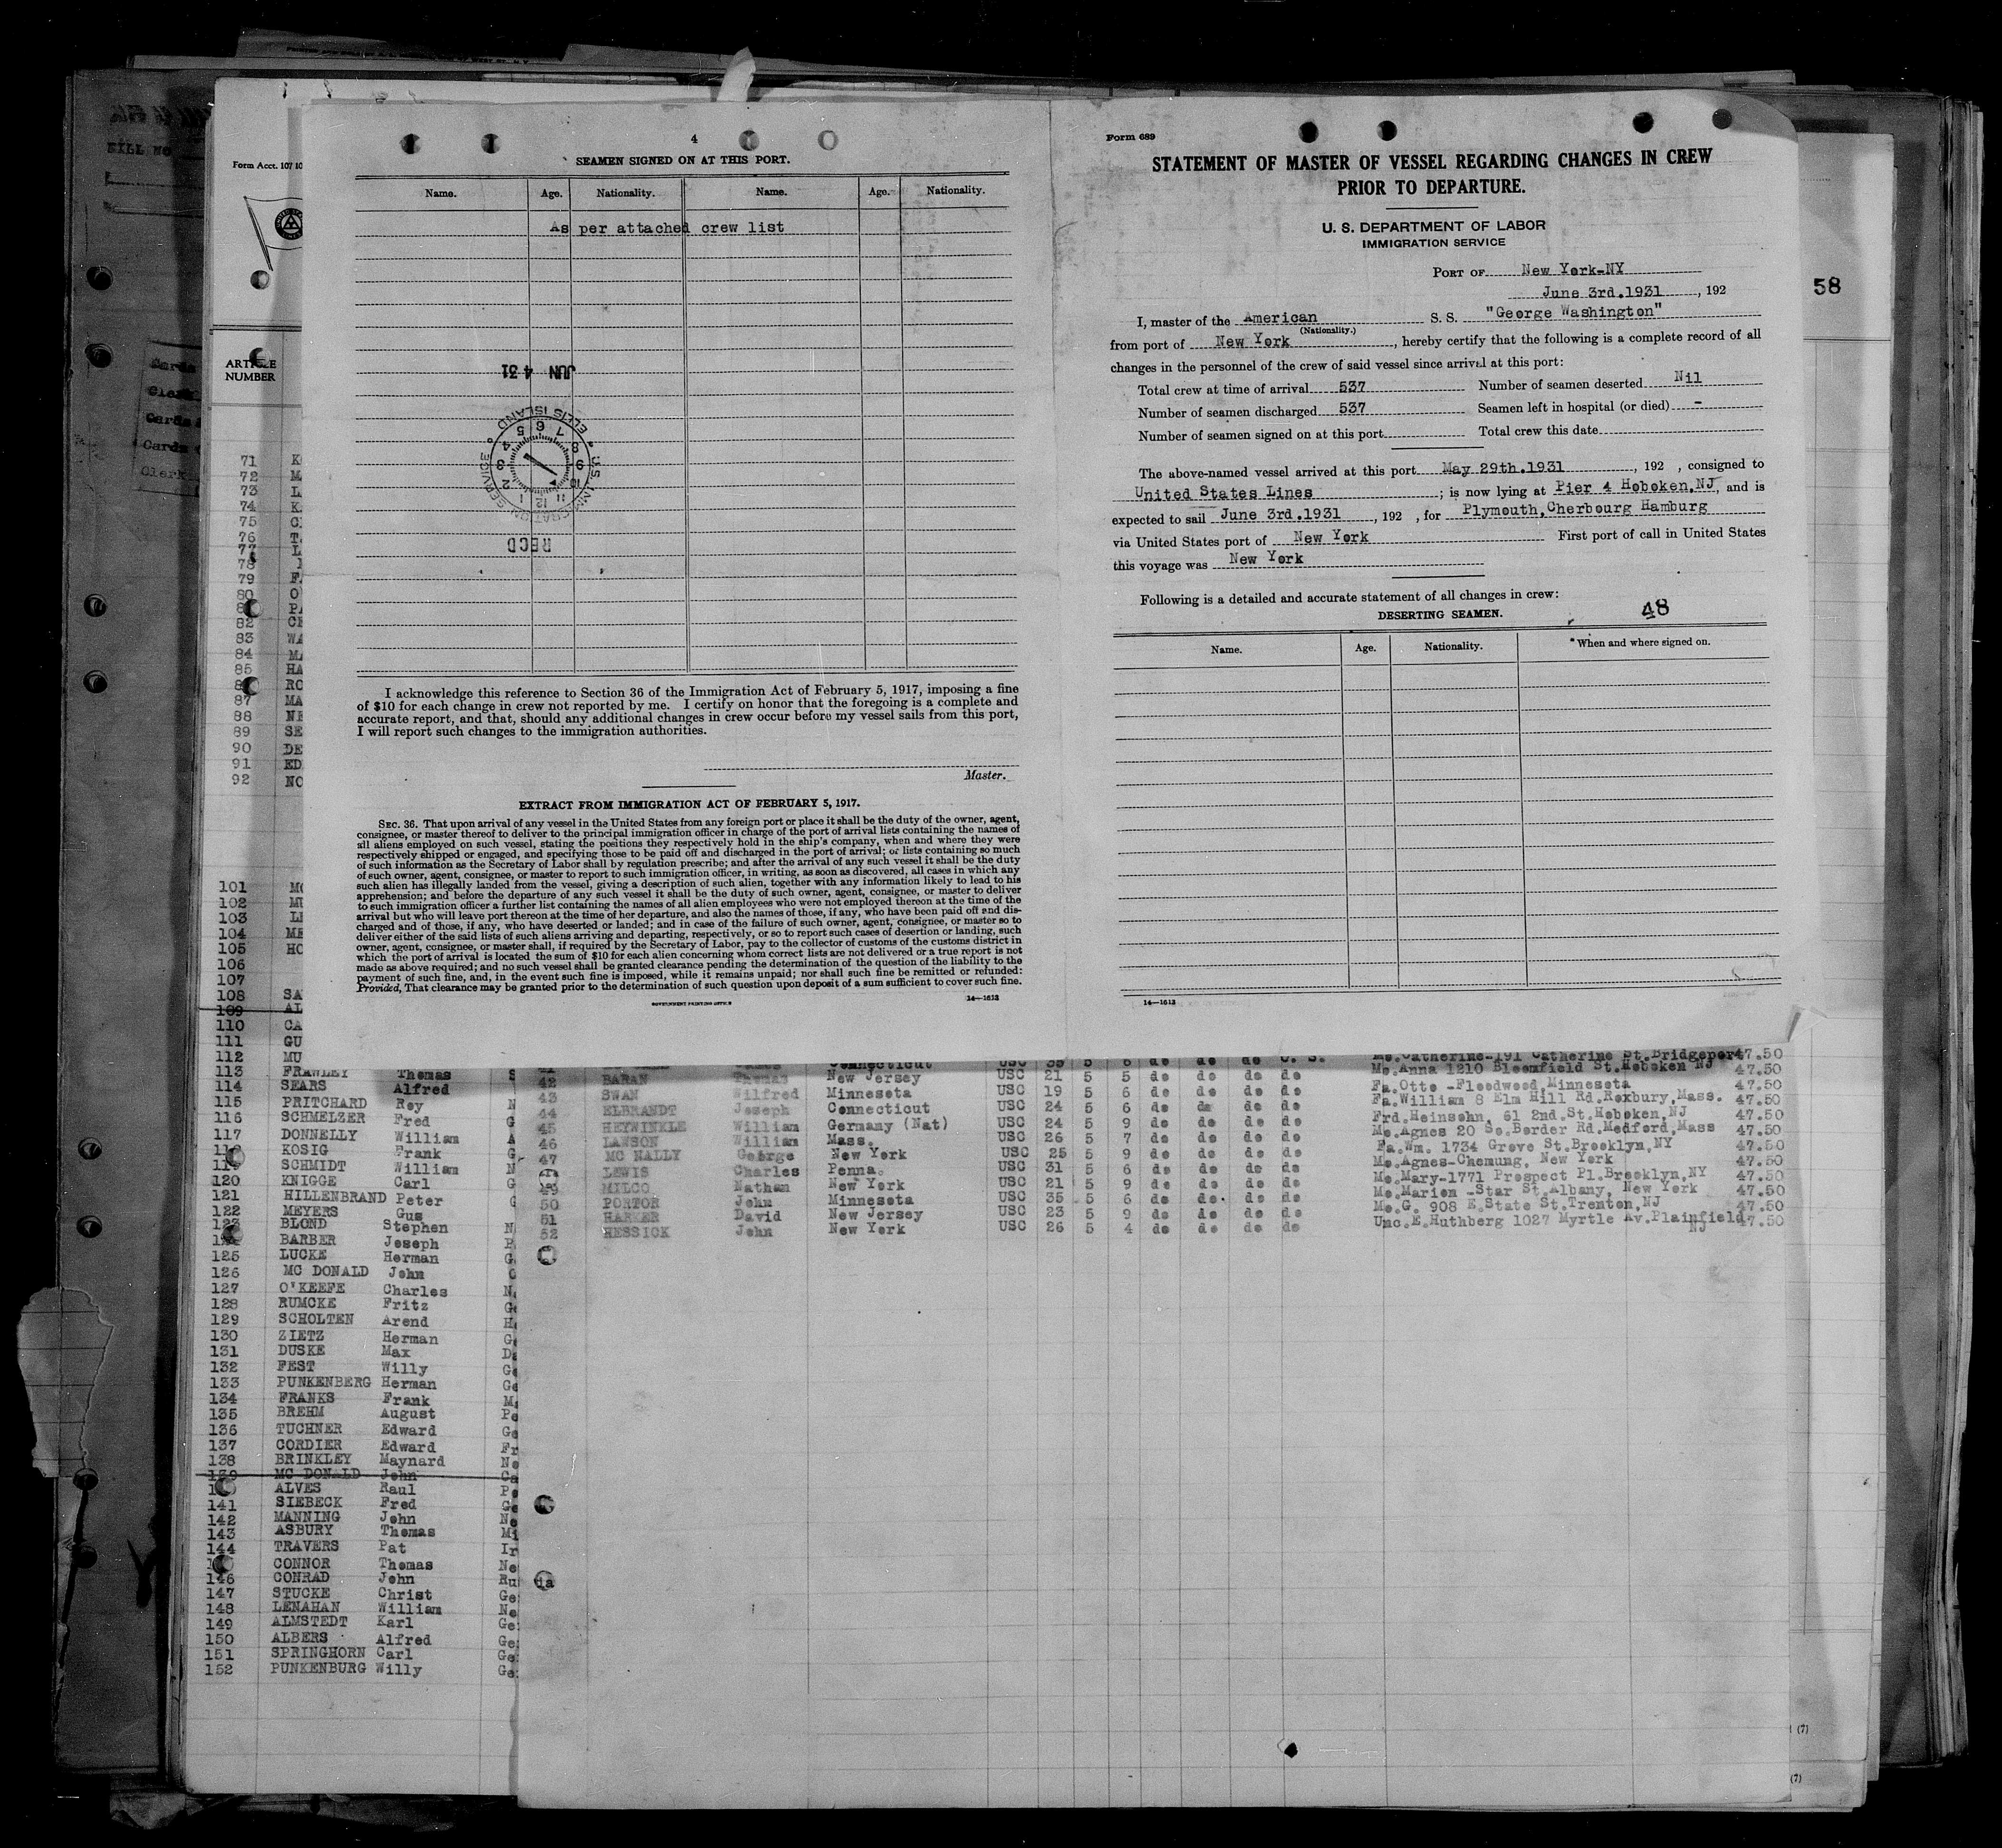 4
SEAMEN SIGNED ON AT THIS PORT.
Name. Age. Nationality. Name. Age. Nationality.
As per attached crew list
JUN 4 31
U.S. IMMIGRATION SERVICE
ELLIS ISLAND
RECD
I acknowledge this reference to Section 36 of the Immigration Act of February 5, 1917, imposing a fine
of $10 for each change in crew not reported by me. I certify on honor that the foregoing is a complete and
accurate report, and that, should any additional changes in crew occur before my vessel sails from this port,
I will report such changes to the immigration authorities.
Master.
EXTRACT FROM IMMIGRATION ACT OF FEBRUARY 5, 1917.
SEC. 36. That upon arrival of any vessel in the United States from any foreign port or place it shall be the duty of the owner, agent,
consignee, or master thereof to deliver to the principal immigration officer in charge of the port of arrival lists containing the names of
all aliens employed on such vessel, stating the positions they respectively hold in the ship's company, when and where they were
respectively shipped or engaged, and specifying those to be paid off and discharged in the port of arrival; or lists containing so much
of such information as the Secretary of Labor shall by regulation prescribe; and after the arrival of any such vessel it shall be the duty
of such owner, agent, consignee, or master to report to such immigration officer, in writing, as soon as discovered, all cases in which any
such alien has illegally landed from the vessel, giving a description of such alien, together with any information likely to lead to his
apprehension; and before the departure of any such vessel it shall be the duty of such owner, agent, consignee, or master to deliver
to such immigration officer a further list containing the names of all alien employees who were not employed thereon at the time of the
arrival but who will leave port thereon at the time of her departure, and also the names of those, if any, who have been paid off and dis-
charged and of those, if any, who have deserted or landed; and in case of the failure of such owner, agent, consignee, or master so to
deliver either of the said lists of such aliens arriving and departing, respectively, or so to report such cases of desertion or landing, such
owner, agent, consignee, or master shall, if required by the Secretary of Labor, pay to the collector of customs of the customs district in
which the port of arrival is located the sum of $10 for each alien concerning whom correct lists are not delivered or a true report is not
made as above required; and no such vessel shall be granted clearance pending the determination of the question of the liability to the
payment of such fine, and, in the event such fine is imposed, while it remains unpaid; nor shall such fine be remitted or refunded:
Provided, That clearance may be granted prior to the determination of such question upon deposit of a sum sufficient to cover such fine.
GOVERNMENT PRINTING OFFICE 14—1613
Form 689
STATEMENT OF MASTER OF VESSEL REGARDING CHANGES IN CREW
PRIOR TO DEPARTURE.
U. S. DEPARTMENT OF LABOR
IMMIGRATION SERVICE
PORT OF New York-NY
June 3rd.1931, 192
I, master of the American S. S. "George Washington"
(Nationality.)
from port of New York, hereby certify that the following is a complete record of all
changes in the personnel of the crew of said vessel since arrival at this port:
Total crew at time of arrival 537 Number of seamen deserted Nil
Number of seamen discharged 537 Seamen left in hospital (or died) -
Number of seamen signed on at this port Total crew this date
The above-named vessel arrived at this port May 29th.1931, 192 , consigned to
United States Lines; is now lying at Pier 4 Hoboken,NJ, and is
expected to sail June 3rd.1931, 192 , for Plymouth,Cherbourg Hamburg
via United States port of New York First port of call in United States
this voyage was New York
Following is a detailed and accurate statement of all changes in crew:
48
DESERTING SEAMEN.
Name. Age. Nationality. *When and where signed on.
14—1613
58
Form Acct. 107
ARTICLE
NUMBER
71 K
72 M
73 L
74 K
75 C
76 T
77 L
78
79 F
80 O
P
82 C
83 WA
84 MA
85 HA
RO
87 MA
88 NE
89 SE
90 DE
91 ED
92 NO
101 MC
102 MU
103 LE
104 ME
105 HO
106
107
108 SA
109 AL
110 CA
111 GU
112 MU
113 FRAWLEY Thomas S
114 SEARS Alfred
115 PRITCHARD Roy N
116 SCHMELZER Fred G
117 DONNELLY William A
KOSIG Frank G
SCHMIDT William N
120 KNIGGE Carl G
121 HILLENBRAND Peter G
122 MEYERS Gus
123 BLOND Stephen N
BARBER Joseph P
125 LUCKE Herman G
126 MC DONALD John
127 O'KEEFE Charles N
128 RUMCKE Fritz Ge
129 SCHOLTEN Arend H
130 ZIETZ Herman G
131 DUSKE Max Da
132 FEST Willy Ge
133 PUNKENBERG Herman Ge
134 FRANKS Frank M
135 BREHM August Pe
136 TUCHNER Edward Ge
137 CORDIER Edward Fr
138 BRINKLEY Maynard Ne
139 MC DONALD John Ca
ALVES Raul Po
141 SIEBECK Fred Ge
142 MANNING John Ne
143 ASBURY Thomas Mi
144 TRAVERS Pat Ir
CONNOR Thomas Ne
146 CONRAD John Ru
147 STUCKE Christ Ge
148 LENAHAN William Ne
149 ALMSTEDT Karl Ge
150 ALBERS Alfred Ge
151 SPRINGHORN Carl Ge
152 PUNKENBURG Willy Ge
Connecticut USC 35 5 6 do do do U. S. Mo.Catherine-191 Catherine St.Bridgeport 47.50
42 BARAN Thomas New Jersey USC 21 5 5 do do do do Mo.Anna 1210 Bloomfield St.Hoboken NJ 47.50
43 SWAN Wilfred Minnesota USC 19 5 6 do do do do Fa.Otto -Floodwood,Minnesota 47.50
44 ELBRANDT Joseph Connecticut USC 24 5 6 do do do do Fa.William 8 Elm Hill Rd.Roxbury,Mass. 47.50
45 HEYWINKLE William Germany (Nat) USC 24 5 9 do do do do Frd.Heinsohn, 61 2nd.St.Hoboken,NJ 47.50
46 LAWSON William Mass. USC 26 5 7 do do do do Mo.Agnes 20 So.Border Rd.Medford,Mass 47.50
47 MC NALLY George New York USC 25 5 9 do do do do Fa.Wm. 1734 Grove St.Brooklyn,NY 47.50
LEWIS Charles Penna. USC 31 5 6 do do do do Mo.Agnes-Chemung, New York 47.50
49 MILCO Nathan New York USC 21 5 9 do do do do Mo.Mary-1771 Prospect Pl.Brooklyn,NY 47.50
50 PORTOR John Minnesota USC 35 5 6 do do do do Mo.Marion -Star St.Albany, New York 47.50
51 HARKER David New Jersey USC 23 5 9 do do do do Mo.G. 908 E.State St.Trenton,NJ 47.50
52 HESSICK John New York USC 26 5 4 do do do do Unc.E.Huthberg 1027 Myrtle Av.Plainfield 47.50
NJ
(7)
(7)